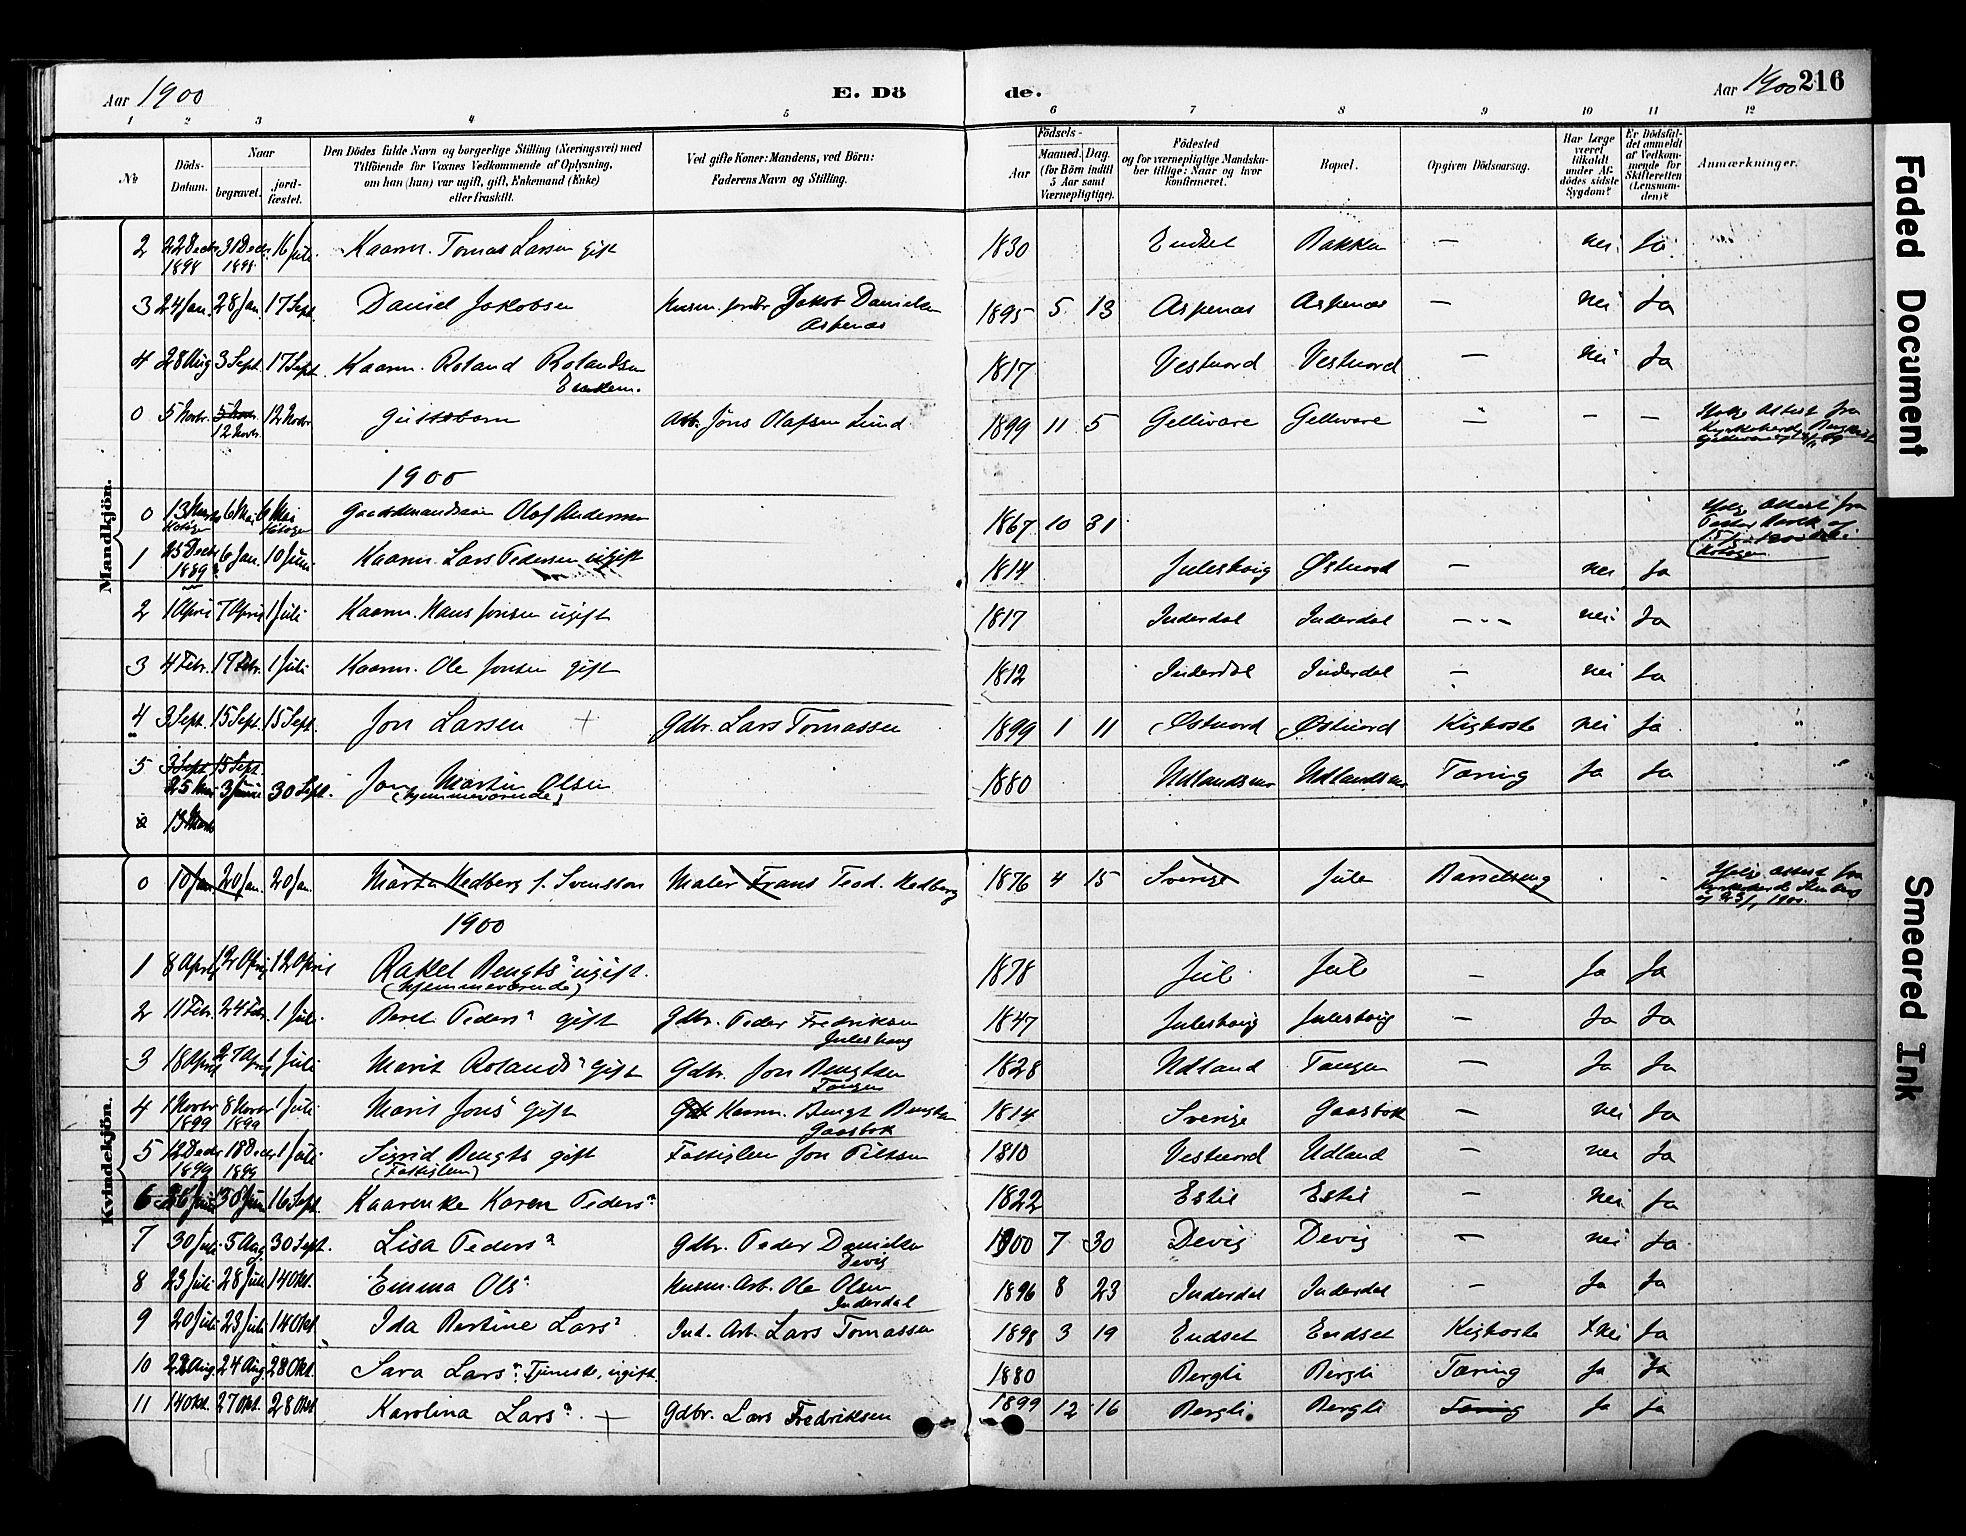 Aar 1900
E. Dö
de.
Aar 1900 216
1 2 3 4 5 6 7 8 9 10 11 12
No
Döds-Datum.
Naar
begravet.
jord-fæstet.
Den Dödes fulde Navn og borgerlige Stilling (Næringsvei) med
Tilföiende for Voxnes Vedkommende af Oplysning,
om han (hun) var ugift, gift, Enkemand (Enke)
eller fraskilt.
Ved gifte Koner: Mandens, ved Börn:
Faderens Navn og Stilling.
Födsels-
Aar
Maaned. Dag.
(for Börn indtil
5 Aar samt
Værnepligtige).
Födested
og for værnepligtige Mandsku-
ber tillige: Naar og hvor
konfirmeret.
Bopæl.
Opgiven Dödsaarsag.
Har Læge
været
tilkaldt
under Af-
dödes sidste
Sygdom?
Er Dödsfal-
det anmeldt
af Vedkom-
mende for
Skifteretten
(Lensman-
den)?
Anmærkninger.
Mandkjön.
2 22 Decbr. 1898 31 Decbr. 1898 16 Juli. Kaarm. Tomas Larsen gift 1830 Endset Bakken — nei Ja
3 24 Jan. 28 Jan. 17 Sept. Daniel Jakobsen Husm. Jakob Danielsen Aspenæs 1895 5 13 Aspenæs Aspenæs — nei Ja
4 28 Aug 3 Sept. 17 Sept. Kaarm. Roland Rolandsen Enkem. 1817 Vestnord Vestnord — nei Ja
0 5 Novbr. 12 Novbr. 12 Novbr Guttebarn Arb. Jöns Olafsen Lund 1899 11 5 Gellivare Gellivare " — — Ifølge Attest fra
1900
0 13 Marts 6 Mai 6 Mai Gaardmandssøn Olof Andersen 1867 10 31 Ifølge Attest fra Pastor
1 25 Decbr. 1889 6 Jan. 10 Juni Kaarm. Lars Pedersen ugift 1814 Juleshaug Østnord — nei Ja
2 1 April 7 April 1 Juli Kaarm. Hans Jonsen ugift 1817 Inderdal Inderdal — nei Ja
3 4 Febr. 17 Febr. 1 Juli Kaarm. Ole Jonsen gift 1812 Inderdal Inderdal — nei Ja
4 3 Sept. 15 Sept. 15 Sept. Jon Larsen + Gdbr. Lars Tomassen 1899 1 11 Østnord Østnord Kighoste nei Ja
5 3 Sept 15 Sept. 25 Mai 3 Juni 30 Sept. Jon Martin Olsen (hjemmeværende) 1880 Udlandsmo Udlandsmo Tæring Ja Ja
13 Marts
Kvindekjön.
0 10 Jan. 20 Jan. 20 Jan. Märta Hedberg f. Svensson Maler Frans Teod. Hedberg 1876 4 15 Sverige Jule Barselseng Ifølge Attest fra
1900
1 8 April 12 April 12 April Rakel Bengtsª ugift. (hjemmeværende) 1878 Jule Jule — Ja Ja
2 11 Febr. 24 Febr. 1 Juli Beret Pedersª gift Gdbr. Peder Fredriksen Juleshaug 1847 Juleshaug Juleshaug — Ja Ja
3 18 April 27 April 1 Juli Marit Rolandsª gift Gdbr. Jon Bengtsen Tangen 1828 Udland Tangen — Ja Ja
4 1 Novbr 1899 8 Novbr 1899 1 Juli Marit Jonsª gift Kaarm. Bengt Bengtsen Gaasbak 1814 Sverige Gaasbak — nei Ja
5 12 Decbr 1899 18 Decbr 1899 1 Juli Sigrid Bengts gift (Fattiglem) Fattiglem Jon 1810 Vestnord Udland — nei Ja
6 26 Juni 30 Juni 16 Sept. Kaarenke Karen Pedersª 1822 Estil Estil — nei Ja
7 30 Juli 5 Aug 30 Sept. Lisa Pedersª Gdbr. Peder Danielsen Devig 1900 7 30 Devig Devig — nei Ja
8 23 Juli 28 Juli 14 Okt. Emma Olsª Husm. Arb. Ole Olsen Inderdal 1896 8 23 Inderdal Inderdal — Ja Ja
9 20 Juli 23 Juli 14 Okt. Ida Bertine Larsª Ind. Arb. Lars Tomassen 1898 3 19 Endset Endset Kighoste nei Ja
10 22 Aug. 24 Aug. 28 Okt. Sara Larsª Tjeneste, ugift 1880 Bergli Bergli Tæring Ja Ja
11 14 Okt. 27 Okt. 28 Okt Karolina Larsª + Gdbr. Lars Fredriksen 1899 12 16 Bergli Bergli Tæring Ja Ja
Faded Document
Smeared Ink